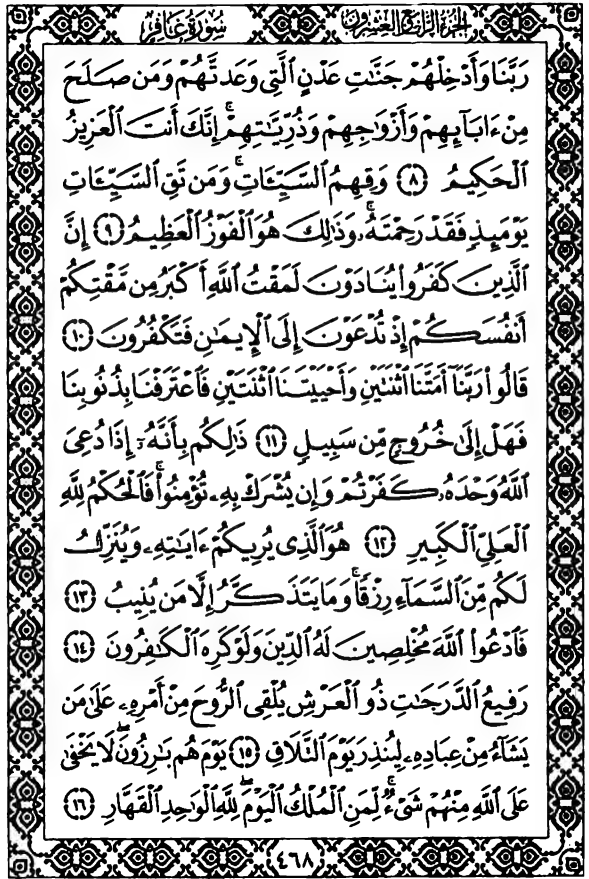 سُورَةُ غَافِرٍ الجُزْءُ الرَّابِعُ وَالعِشْرُونَ
رَبَّنَا وَأَدْخِلْهُمْ جَنَّٰتِ عَدْنٍ ٱلَّتِى وَعَدتَّهُمْ وَمَن صَلَحَ
مِنْ ءَابَآئِهِمْ وَأَزْوَٰجِهِمْ وَذُرِّيَّٰتِهِمْۚ إِنَّكَ أَنتَ ٱلْعَزِيزُ
ٱلْحَكِيمُ ٨ وَقِهِمُ ٱلسَّيِّـَٔاتِۚ وَمَن تَقِ ٱلسَّيِّـَٔاتِ
يَوْمَئِذٍ فَقَدْ رَحِمْتَهُۥۚ وَذَٰلِكَ هُوَ ٱلْفَوْزُ ٱلْعَظِيمُ ٩ إِنَّ
ٱلَّذِينَ كَفَرُوا۟ يُنَادَوْنَ لَمَقْتُ ٱللَّهِ أَكْبَرُ مِن مَّقْتِكُمْ
أَنفُسَكُمْ إِذْ تُدْعَوْنَ إِلَى ٱلْإِيمَٰنِ فَتَكْفُرُونَ ١٠
قَالُوا۟ رَبَّنَآ أَمَتَّنَا ٱثْنَتَيْنِ وَأَحْيَيْتَنَا ٱثْنَتَيْنِ فَٱعْتَرَفْنَا بِذُنُوبِنَا
فَهَلْ إِلَىٰ خُرُوجٍ مِّن سَبِيلٍ ١١ ذَٰلِكُم بِأَنَّهُۥٓ إِذَا دُعِىَ
ٱللَّهُ وَحْدَهُۥ كَفَرْتُمْ وَإِن يُشْرَكْ بِهِۦ تُؤْمِنُوا۟ۚ فَٱلْحُكْمُ لِلَّهِ
ٱلْعَلِىِّ ٱلْكَبِيرِ ١٢ هُوَ ٱلَّذِى يُرِيكُمْ ءَايَٰتِهِۦ وَيُنَزِّلُ
لَكُم مِّنَ ٱلسَّمَآءِ رِزْقًاۚ وَمَا يَتَذَكَّرُ إِلَّا مَن يُنِيبُ ١٣
فَٱدْعُوا۟ ٱللَّهَ مُخْلِصِينَ لَهُ ٱلدِّينَ وَلَوْ كَرِهَ ٱلْكَٰفِرُونَ ١٤
رَفِيعُ ٱلدَّرَجَٰتِ ذُو ٱلْعَرْشِ يُلْقِى ٱلرُّوحَ مِنْ أَمْرِهِۦ عَلَىٰ مَن
يَشَآءُ مِنْ عِبَادِهِۦ لِيُنذِرَ يَوْمَ ٱلتَّلَاقِ ١٥ يَوْمَ هُم بَٰرِزُونَۖ لَا يَخْفَىٰ
عَلَى ٱللَّهِ مِنْهُمْ شَىْءٌۚ لِّمَنِ ٱلْمُلْكُ ٱلْيَوْمَۖ لِلَّهِ ٱلْوَٰحِدِ ٱلْقَهَّارِ ١٦
٤٦٨